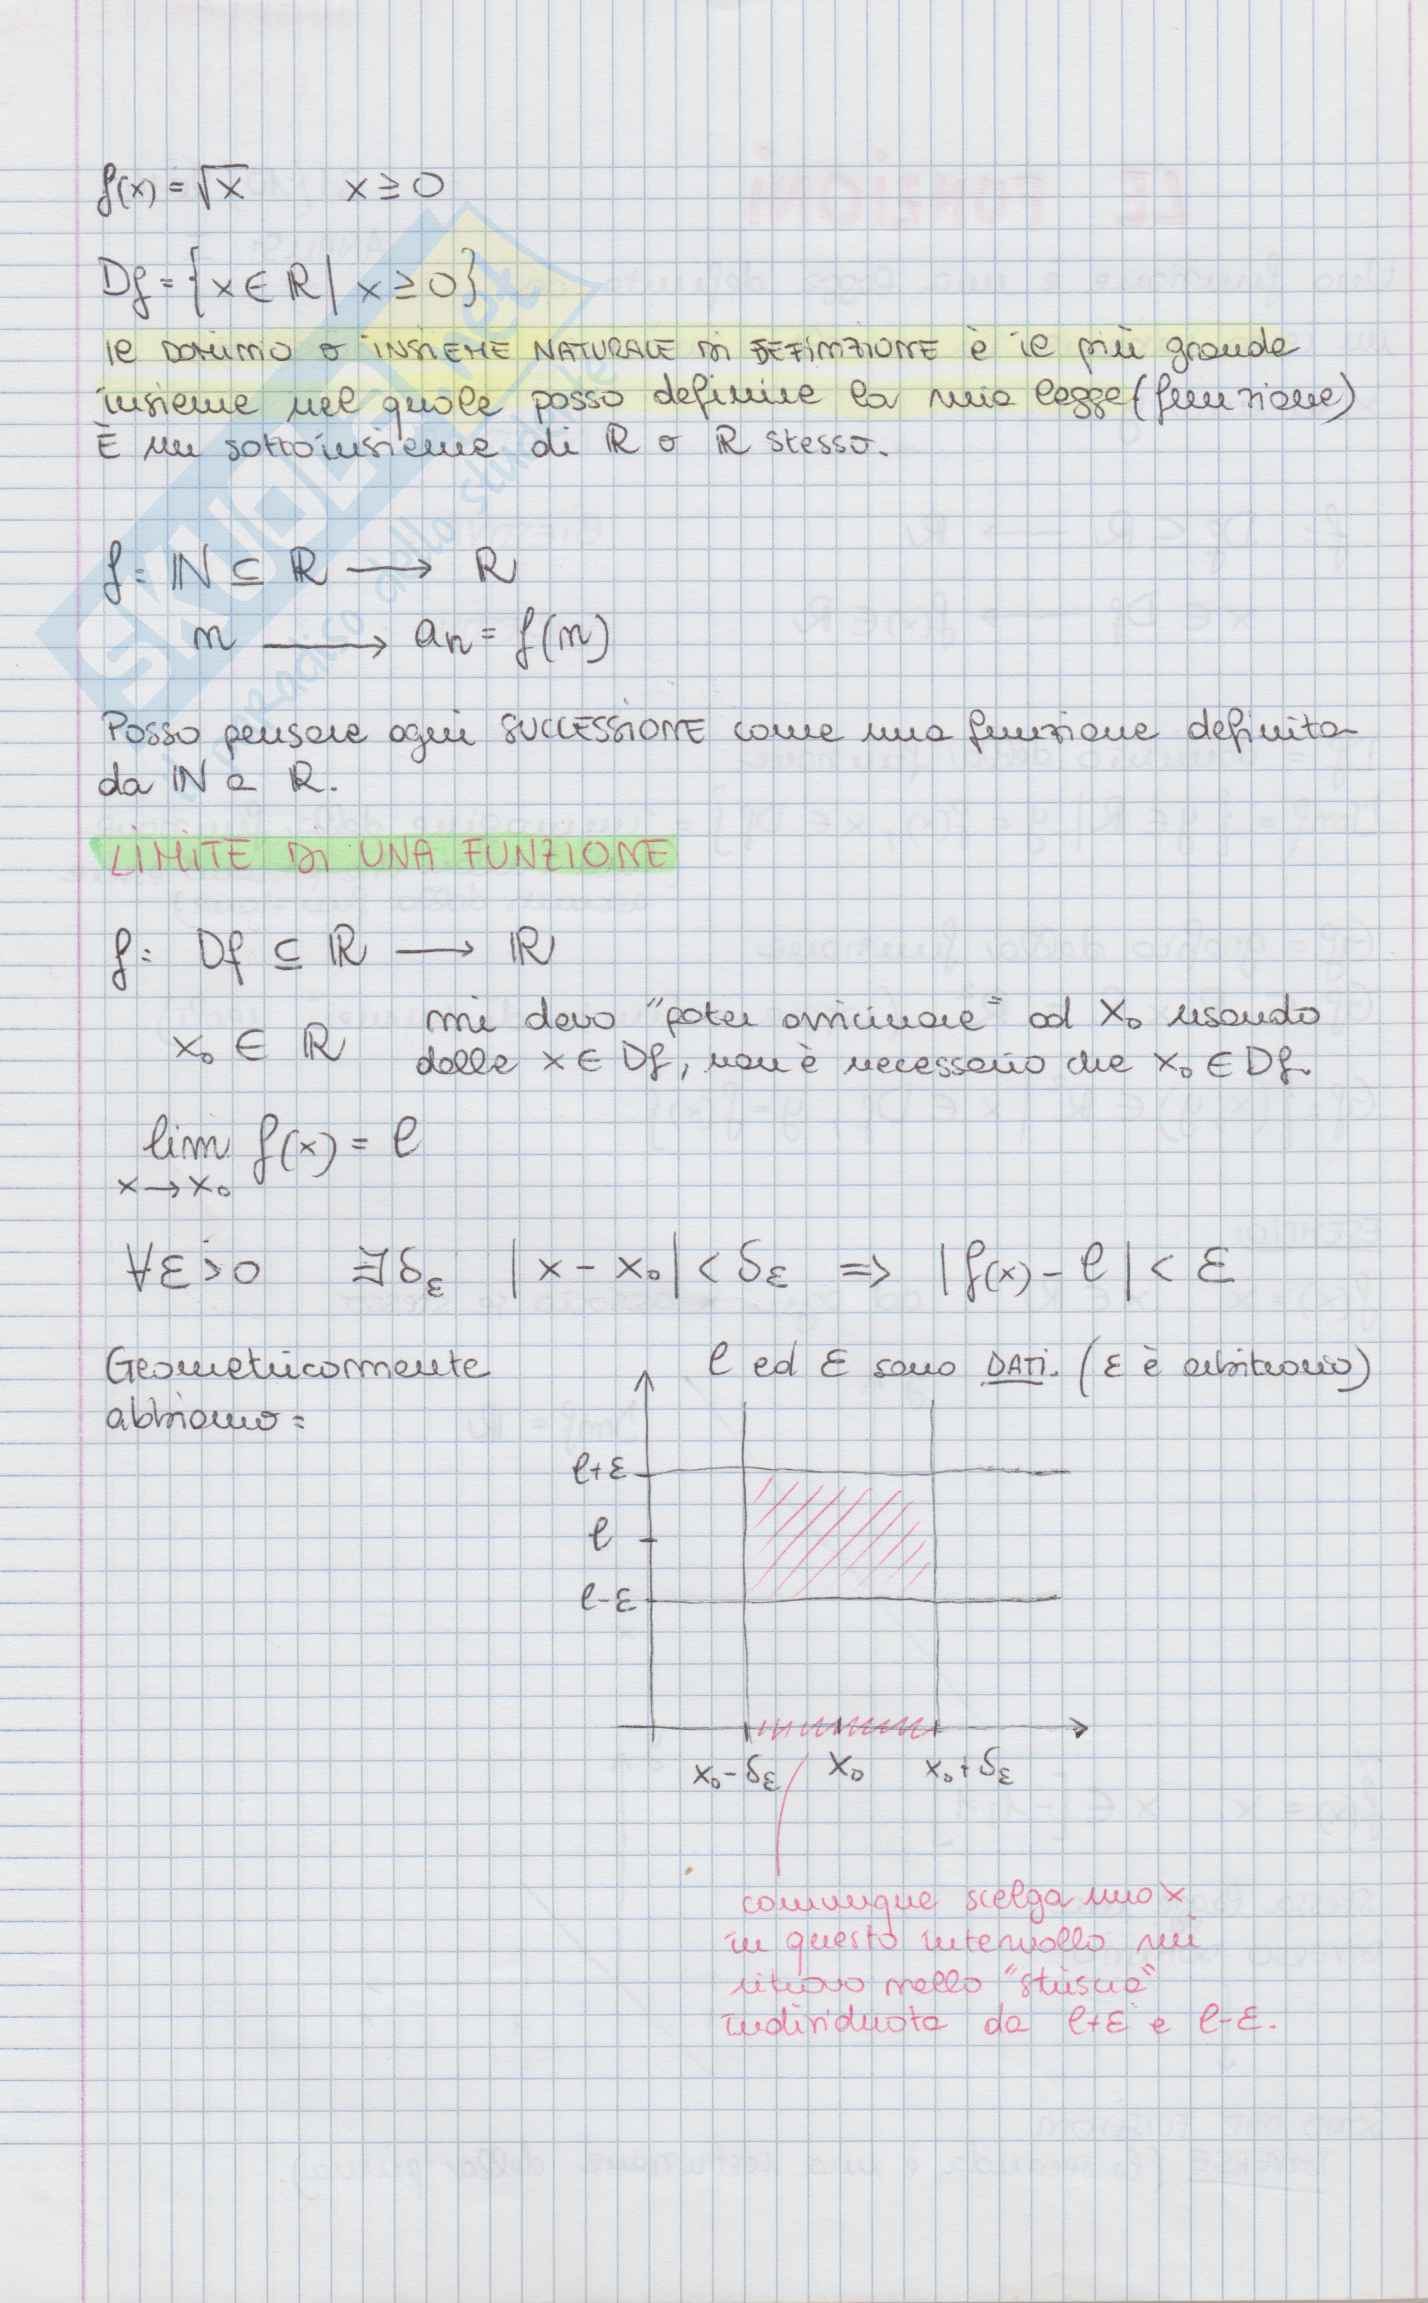 f(x) = √x x ≥ 0
Df = {x ∈ ℝ | x ≥ 0}
Il DOMINIO o INSIEME NATURALE DI DEFINIZIONE è il più grande
insieme nel quale posso definire la mia legge (funzione)
È un sottoinsieme di ℝ o ℝ stesso.
f: ℕ ⊆ ℝ ⟶ ℝ
n ⟶ an = f(n)
Posso pensare ogni SUCCESSIONE come una funzione definita
da ℕ a ℝ.
LIMITE DI UNA FUNZIONE
f: Df ⊆ ℝ ⟶ ℝ
x₀ ∈ ℝ mi devo "poter avvicinare" ad x₀ usando
delle x ∈ Df, non è necessario che x₀ ∈ Df.
lim f(x) = l
x → x₀
∀ε > 0 ∃ δε |x - x₀| < δε ⇒ |f(x) - l| < ε
Geometricamente
abbiamo:
l ed ε sono DATI. (ε è arbitrario)
l+ε
l
l-ε
x₀-δε x₀ x₀+δε
comunque scelga uno x
in questo intervallo mi
ritrovo nella "striscia"
individuata da l+ε e l-ε.
SKUOLA.net
il paradiso dello studente